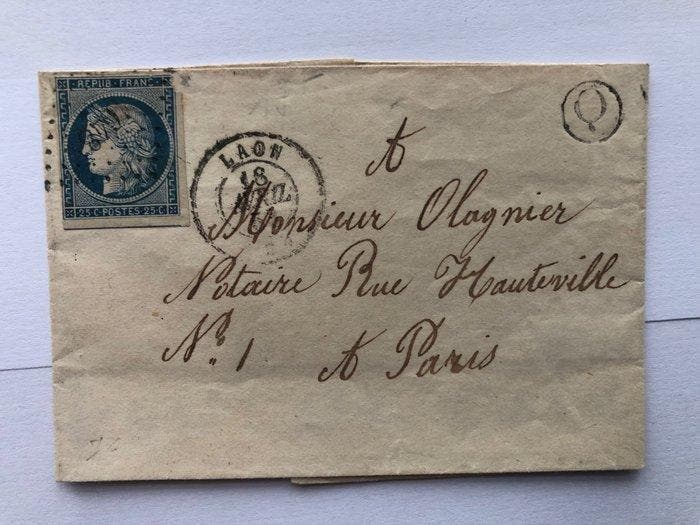 REPUB·FRANC·
25·C·POSTES·25·C
Q
LAON
18
AVRIL
A
Monsieur Olagnier
Notaire Rue Hauteville
No. 1 A Paris